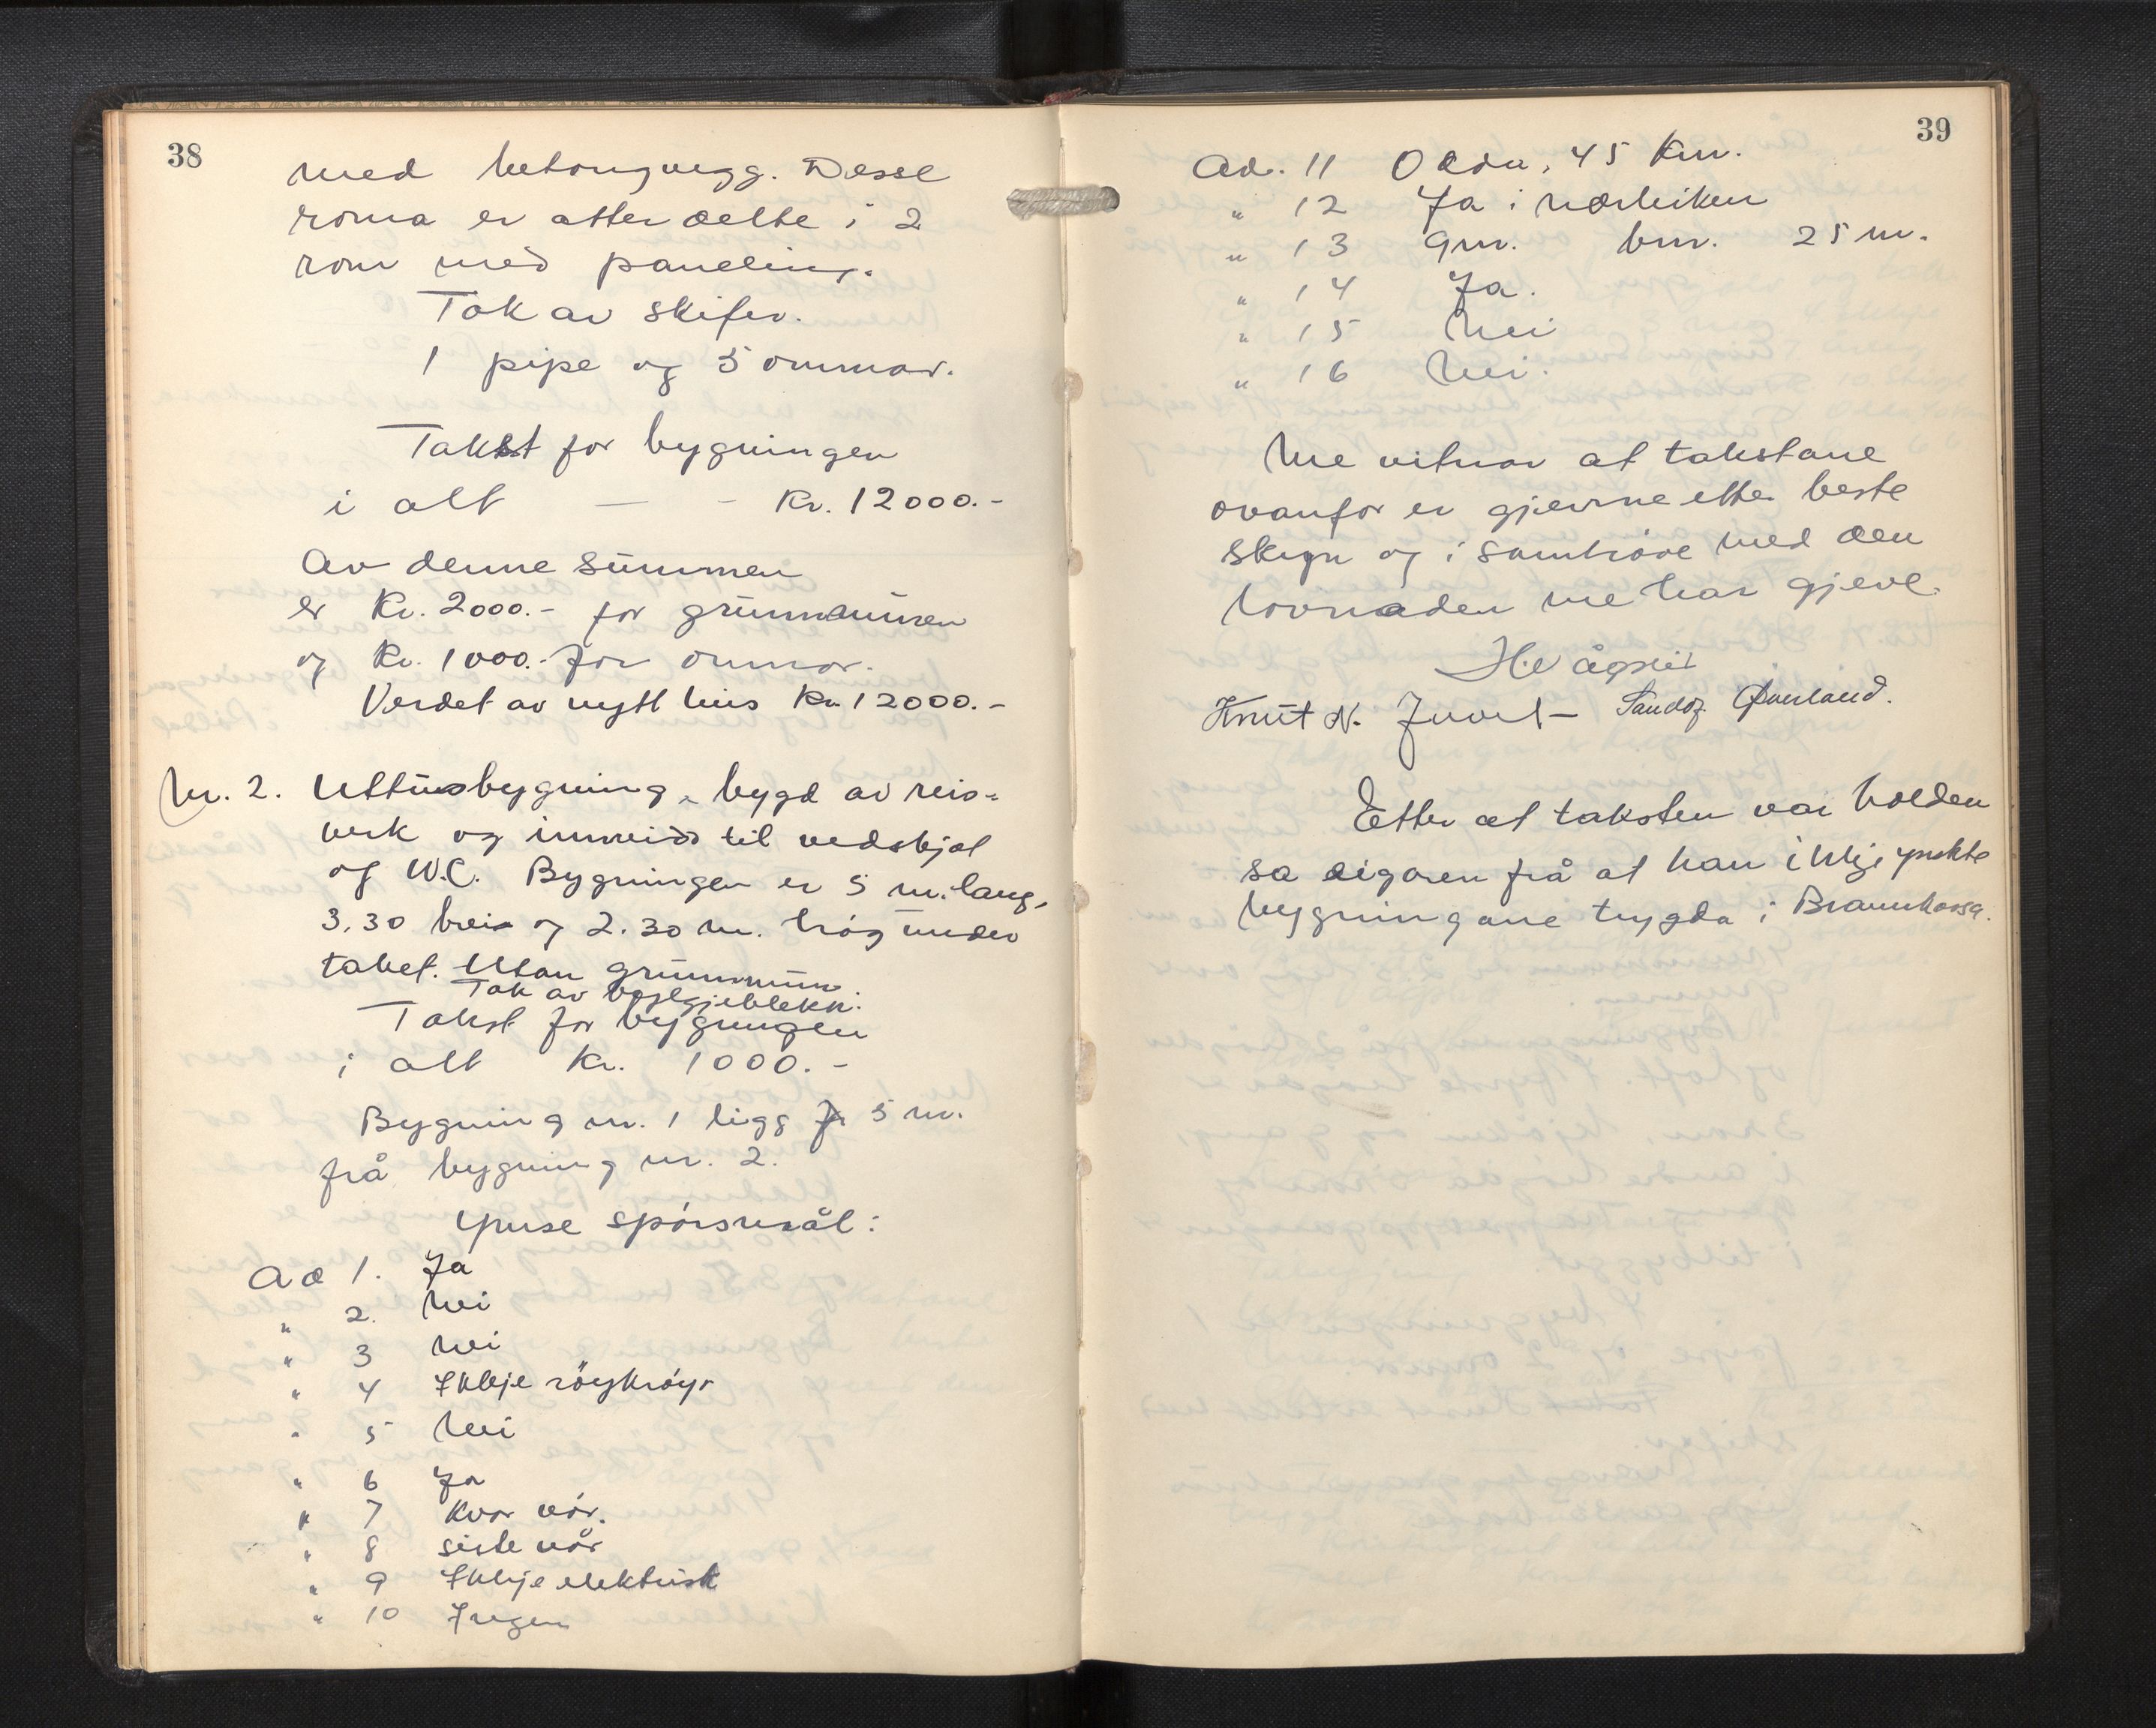 38
med betongvegg. Desse
roma er atter delte i 2
rom med paneling.
Tak av skifer.
1 pipe og 5 ommar.
Takst for bygningen
i alt — - Kr. 12000.-
Av denne summen
er Kr. 2000.- for grunnmuren
og Kr. 1000.- for ommar.
Verdet av nytt hus Kr. 12000.-
Nr. 2. Uthusbygning, bygd av reis-
verk og innreidd til vedskjol
og W.C. Bygningen er 5 m. lang,
3,30 brei og 2.30 m. høg under
taket. Utan grunnmur.
Tak av bylgjeblekk.
Takst for bygningen
i alt Kr. 1000.-
Bygning nr. 1 ligg 5 m.
frå bygning nr. 2.
Ymse spørsmål:
Ad 1. Ja
" 2. Nei
" 3 Nei
" 4 Ikkje røykrøyr
" 5 Nei
" 6 Ja
" 7 Kvar vår.
" 8 siste vår
" 9 Ikkje elektrisk
" 10 Ingen
39
Ad. 11 Odda, 45 km.
" 12 Ja i nærleiken
" 13 9 m. br. 25 m.
" 14 Ja.
" 15 Nei
" 16 Nei.
Me vitnar at takstane
ovanfor er gjevne etter beste
skyn og i samhøve med den
lovnaden me har gjeve.
H. Vågslid
Knut N. Juvet - Sandof Øverland.
Etter at taksten var halden
sa eigaren frå at han ikkje ynskte
bygningane trygda i Brannkassa.